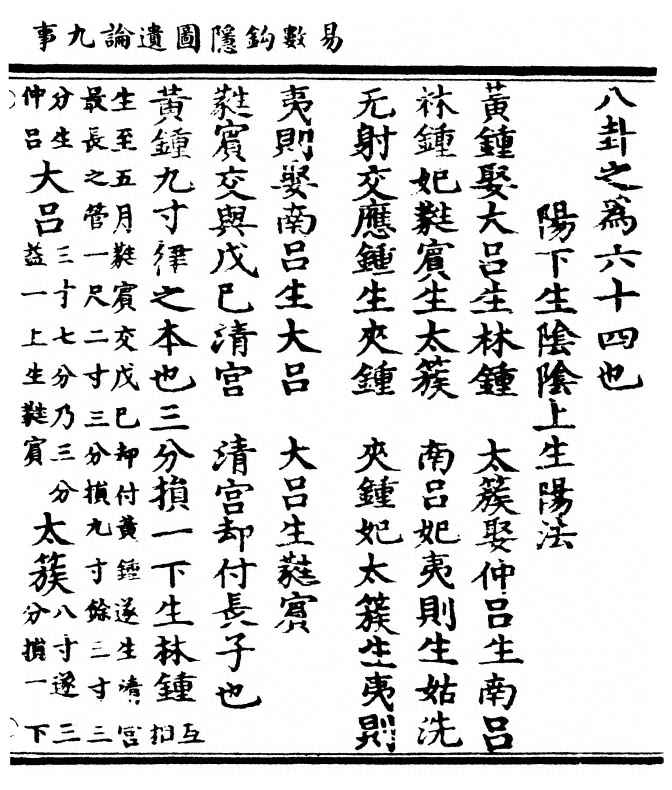 易數鈎隱圖遺論九事
八卦之爲六十四也
陽下生陰陰上生陽法
黃鍾娶大呂生林鍾　太簇娶仲呂生南呂
林鍾妃蕤賓生太簇　南呂妃夷則生姑洗
无射交應鍾生夾鍾　夾鍾妃太簇生夷則
夷則娶南呂生大呂　大呂生蕤賓
蕤賓交與戊巳清宮　清宮却付長子也
黃鍾九寸律之本也三分損一下生林鍾互相
生至五月蕤賓交戊巳却付黃鍾遂生清宮
最長之管一尺二寸三分損九寸餘三寸三
分生仲呂大呂三寸七分乃三分益一上生蕤賓太簇八寸遂三分損一下